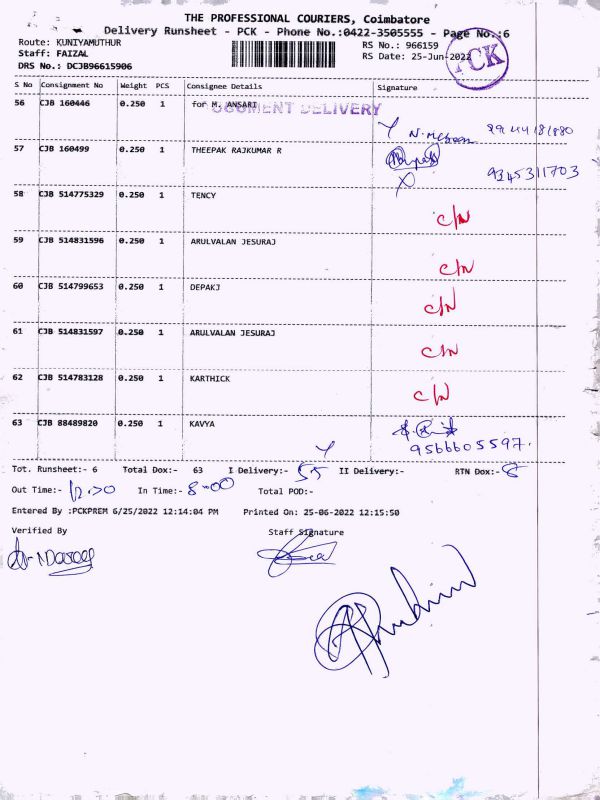 THE PROFESSIONAL COURIERS, Coimbatore
Delivery Runsheet - PCK - Phone No.:0422-3505555 - Page No.:6
Route: KUNIYAMUTHUR
Staff: FAIZAL
DRS No.: DCJB96615906
RS No.: 966159
RS Date: 25-Jun-2022
PCK
S No Consignment No Weight PCS Consignee Details Signature
56 CJB 160446 0.250 1 for M. ANSARI
DOCUMENT DELIVERY
57 CJB 160499 0.250 1 THEEPAK RAJKUMAR R
9345311703
58 CJB 514775329 0.250 1 TENCY C/N
59 CJB 514831596 0.250 1 ARULVALAN JESURAJ C/N
60 CJB 514799653 0.250 1 DEPAKJ C/N
61 CJB 514831597 0.250 1 ARULVALAN JESURAJ C/N
62 CJB 514783128 0.250 1 KARTHICK C/N
63 CJB 88489820 0.250 1 KAVYA
9566605597.
Tot. Runsheet:- 6 Total Dox:- 63 I Delivery:- 55 II Delivery:- RTN Dox:- 8
Out Time:- In Time:- 8-00 Total POD:-
Entered By :PCKPREM 6/25/2022 12:14:04 PM Printed On: 25-06-2022 12:15:50
Verified By Staff Signature